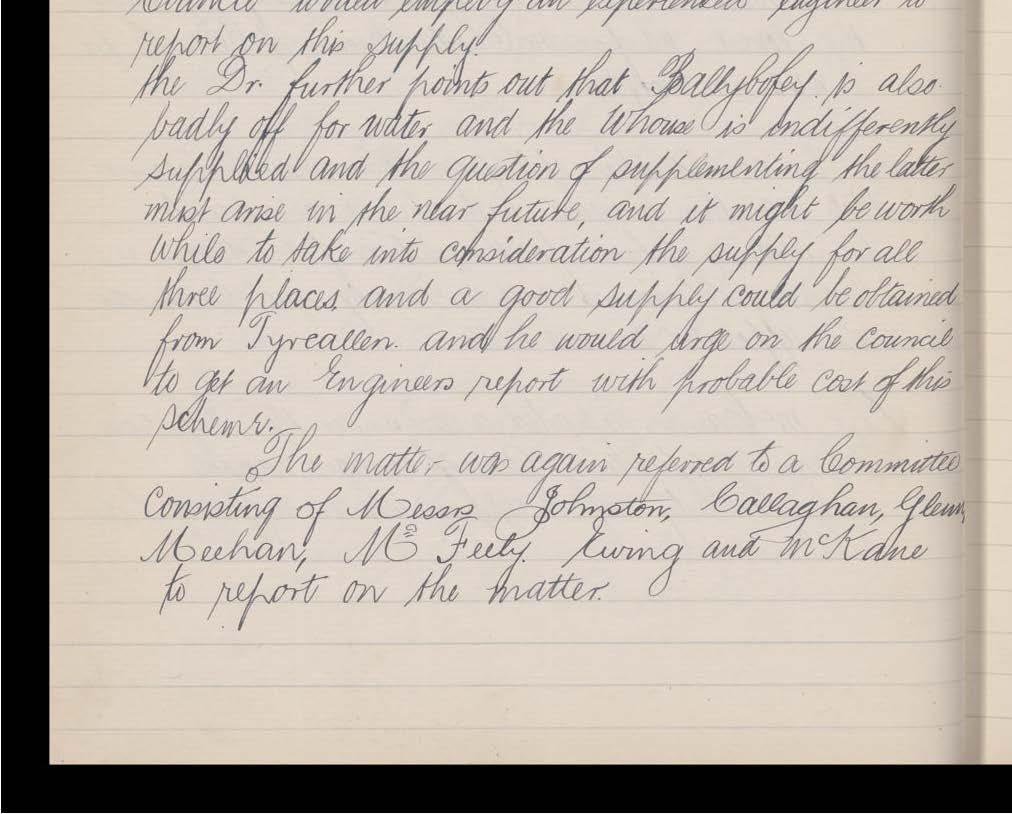 Council would employ an experienced engineer to
report on this supply.
the Dr. further points out that Ballybofey. is also
badly off for water and the Whouse is indifferently
supplied and the question of supplementing the latter
must arise in the near future, and it might be worth
while to take into consideration the supply for all
three places, and a good supply could be obtained
from Tyrcallen. and he would urge on the Council
to get an Engineers report with probable cost of this
scheme.
The matter was again referred to a Committee
Consisting of Messrs Johnston, Callaghan, Glenn,
Meehan, Mc Feely. Ewing and McKane
to report on the matter.